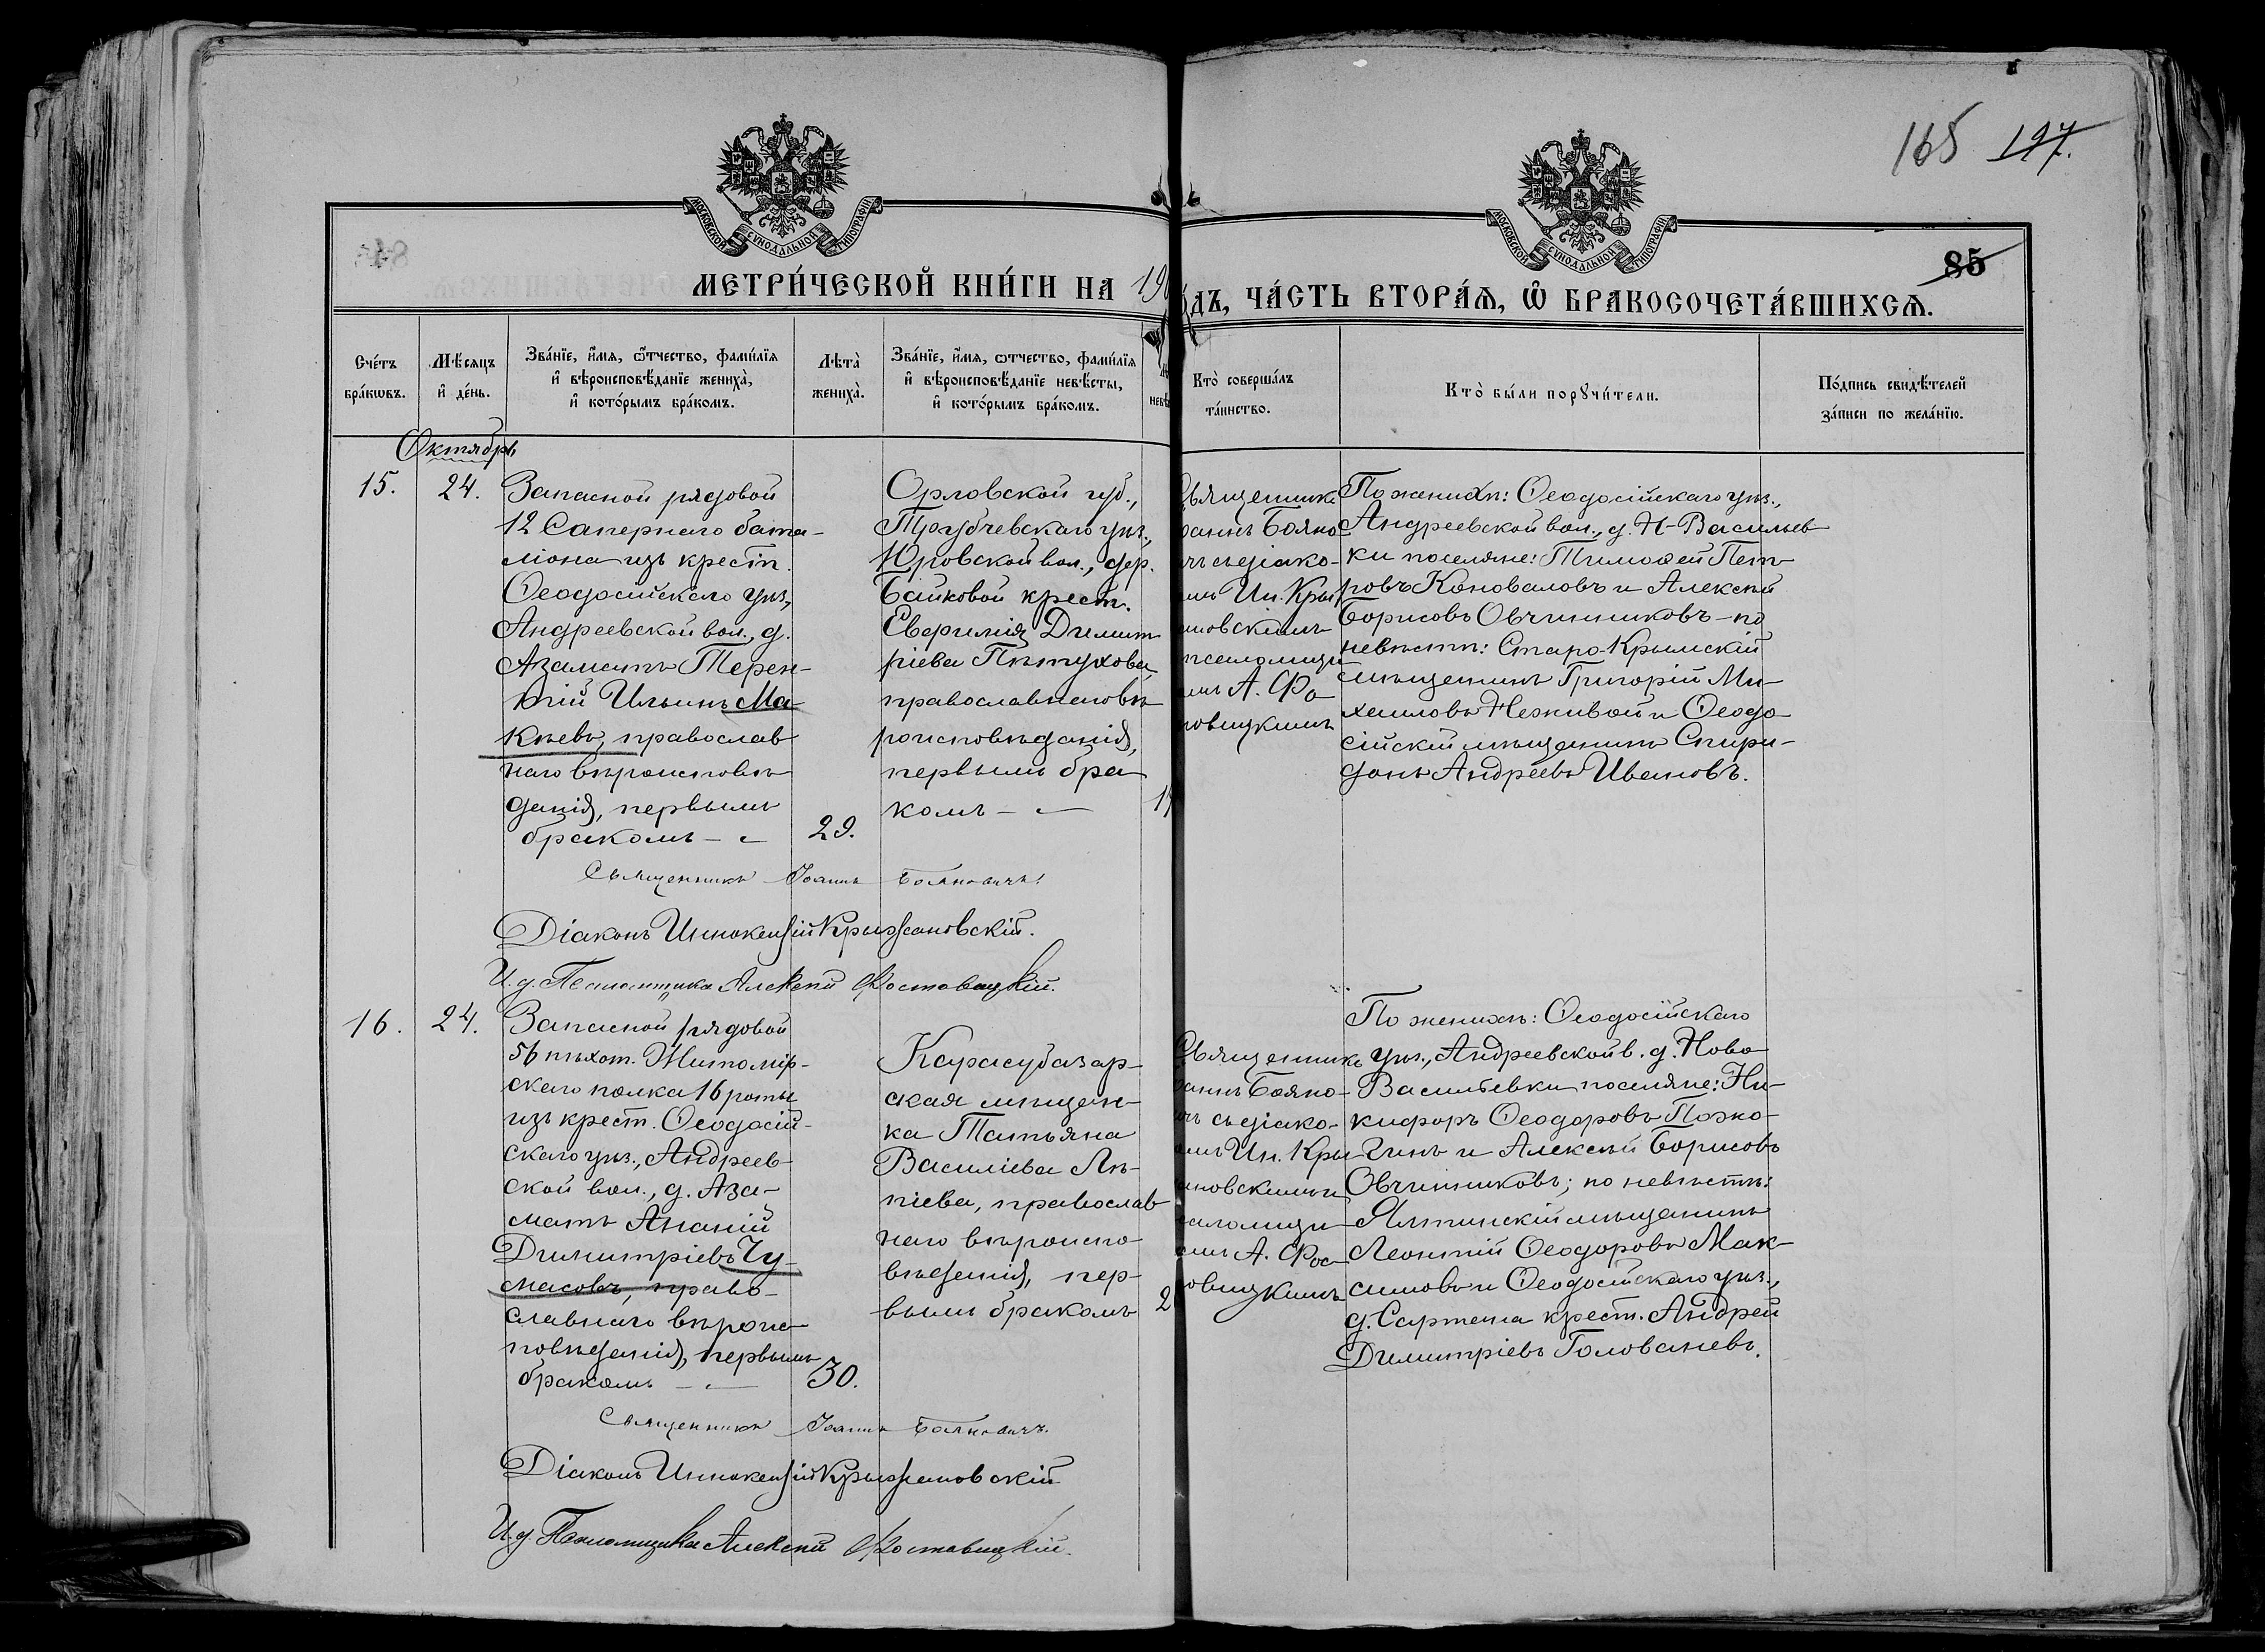 165 197.
МОСКОВСКОЙ СѴНОДАЛЬНОЙ ТИПОГРАФІИ
МОСКОВСКОЙ СѴНОДАЛЬНОЙ ТИПОГРАФІИ
85
МЕТРИ́ЧЕСКОЙ КНИ́ГИ НА 19
ДЪ, ЧА́СТЬ ВТОРА́Ѧ, Ѽ БРАКОСОЧЕТА́ВШИХСѦ.
Сче́тъ
бра́кѡвъ.
Мѣ́сѧцъ
и҆ де́нь.
Зва́нїе, и҆́мѧ, ѻ҆́тчество, фами́лїѧ
и҆ вѣроисповѣ́данїе жениха̀,
и҆ кото́рымъ бра́комъ.
Лѣта̀
жениха̀.
Зва́нїе, и҆́мѧ, ѻ҆́тчество, фами́лїѧ
и҆ вѣроисповѣ́данїе невѣ́сты,
и҆ кото́рымъ бра́комъ.
Кто̀ соверша́лъ
та́инство.
Кто̀ бы́ли порꙋчи́тели.
По́дпись свидѣ́телей
за́писи по жела́нїю.
Октябрь
15.
24.
Запасной рядовой
12 Сапернаго бата-
ліона изъ крестн.
Ѳеодосійскаго уѣз.,
Андреевской вол., д.
Азаматъ Терен-
тій Ильинъ Ма-
кѣевъ, православ
наго вѣроисповѣ
данія, первымъ
бракомъ —
29.
Орловской губ.,
Трубчевскаго уѣз.,
Юровской вол., дер.
Байковой крест.
Евфимія Димит
ріева Пѣтухова,
православнаго вѣ
роисповѣданія,
первымъ бра
комъ —
Священникъ
оаннъ Бояно
чъ съ діако-
мъ Ин. Кры
ановскимъ
псаломщи
мъ А. Фо
товицкимъ
По женихѣ: Ѳеодосійскаго уѣз.,
Андреевской вол., д. Н-Васильев
ки поселяне: Тимоѳей Пет
ровъ Коноваловъ и Алексѣй
Борисовъ Овчинниковъ — по
невѣстѣ: Старо-Крымскій
мѣщанинъ Григорій Ми-
хаиловъ Неживой и Ѳеодо
сійскій мѣщанинъ Спири-
донъ Андреевъ Ивановъ.
Священникъ Іоаннъ Бояновичъ.
Діаконъ Иннокентій Крыжановскій.
И. д. Псаломщика Алексѣй Фостовицкій.
16.
24.
Запасной рядовой
56 пѣхот. Житомір-
скаго полка 16 роты
изъ крест. Ѳеодосій-
скаго уѣз., Андреев-
ской вол., д. Аза-
матъ Ананій
Димитріевъ Чу-
масовъ, право-
славнаго вѣроис
повѣданія, первымъ
бракомъ —
30.
Карасубазар-
ская мѣщан-
ка Татьяна
Василіева Лѣ-
піева, православ
наго вѣроиспо
вѣданія, пер-
вымъ бракомъ
2
Священникъ
оаннъ Бояно-
чъ съ діако-
мъ Ин. Кры
ановскимъ и
саломщи
мъ А. Фос
овицкимъ
По женихѣ: Ѳеодосійскаго
уѣз., Андреевской в. д. Ново
Васильевки поселяне: Ни-
кифоръ Ѳеодоровъ Пожо-
гинъ и Алексѣй Борисовъ
Овчинниковъ; по невѣстѣ:
Ялтинскій мѣщанинъ
Леонтій Ѳеодоровъ Мак-
симовъ и Ѳеодосійскаго уѣз.,
д. Сартена крест. Андрей
Димитріевъ Голованевъ.
Священникъ Іоаннъ Бояновичъ.
Діаконъ Иннокентій Крыжановскій
И. д. Псаломщика Алексѣй Фостовицкій.